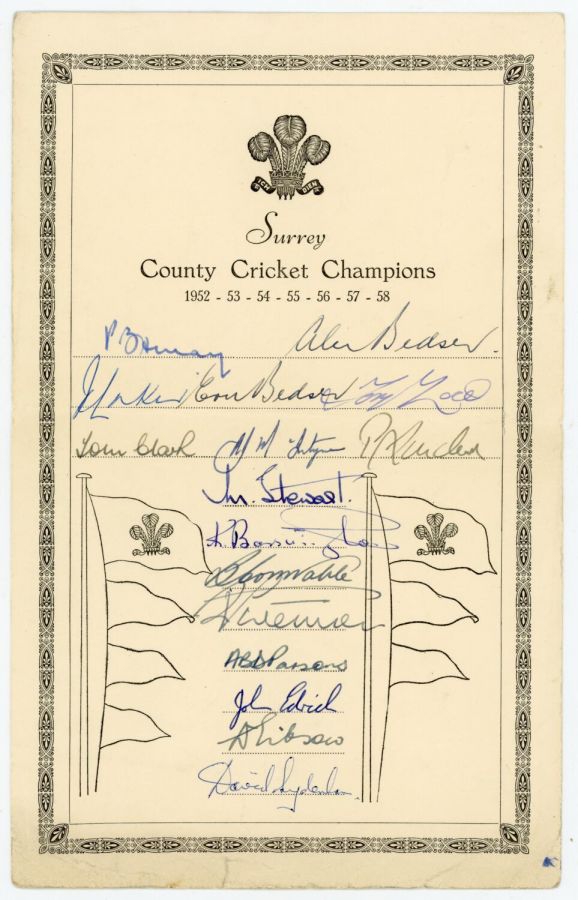 ICH DIEN
Surrey
County Cricket Champions
1952 - 53 - 54 - 55 - 56 - 57 - 58
P B H May Alec Bedser.
J Laker Eric Bedser Tony Lock
Tom Clark A J McIntyre
M. Stewart.
K. Barrington
B Constable
D Fletcher
A B D Parsons
John Edrich
D Gibson
David Sydenham